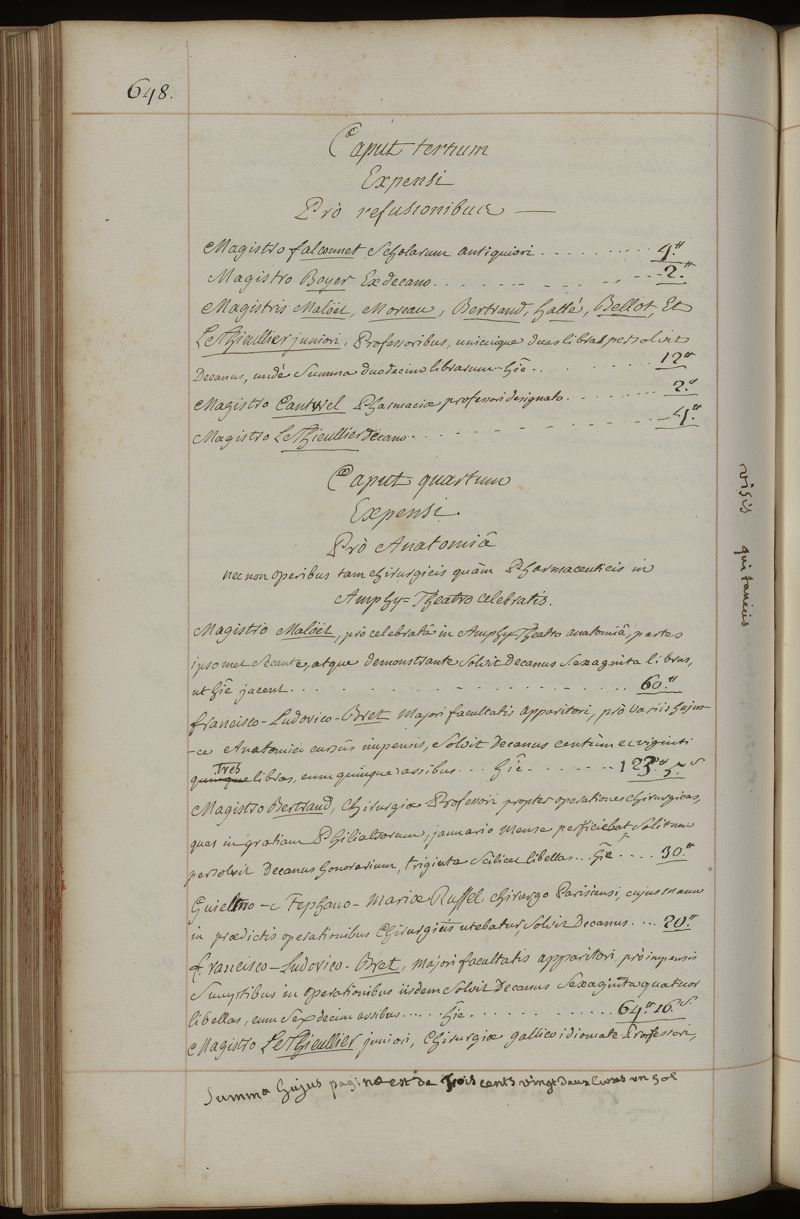 648.
Caput tertium
Expensi
Prò refusionibus —
Magistro falconnet Scholarum antiquiori . . . . . . . . . 4.tt
Magistro Boyer Exdecano . . . . . . . . . . 2.tt
Magistris Maloët, Moreau, Bertrand, hatté, Bellot, Et
LeThieullier juniori, Professoribus, unicuique duas libras persolvit
Decanus, undè Summa duodecim librarum hîc . . . . . . . . 12tt
Magistro Cantwel Pharmaciæ professori designato . . . . . . . 2.tt
Magistro LeThieullier decano . . . . . . . . . . 4.tt
Caput quartum
Expensi.
Prò Anatomiâ
nec non operibus tam chirurgicis quàm Pharmaceuticis in
Amphy=Theatro celebratis.
Magistro Maloët, prò celebratâ in Amphy-Theatro anatomiâ, partes
ipsomet Secante, atque demonstrante Solvit Decanus Sexaginta libras,
ut hîc jacent . . . . . . . . . . . . . . . 60.tt
francisco-Ludovico-Bret Majori facultatis apparitori, prò variis hujus-
-ce Anatomici cursûs impensis, Solvit Decanus centùm ac viginti
quinque tres libras, cum quinque assibus . . . hîc . . . . . . . 123tt 5.s
Magistro Bertrand, Chirurgiæ Professori propter operationes chirurgicas,
quas in gratiam Philiatrorum, januario Mense perficiebat Solitum
persolvit Decanus honorarium, triginta Scilicet libellas . . hîc . . . . 30.tt
Guielmo-Stephano-Mariæ Ruffel chirurgo Parisiensi, cujus manu
in prædictis operationibus Chirurgicis utebatur, Solvit Decanus . . . 20.tt
francisco-Ludovico-Bret, Majori facultatis apparitori, prò impensis
Sumptibus in operationibus iisdem Solvit Decanus Sexaginta quatuor
libellas, cum Sexdecim assibus . . . . . hîc . . . . . . . . . . . . 64.tt 16.s
Magistro LeThieullier juniori, Chirurgiæ gallico idiomate Professori,
Summa hujus paginæ est de Trois cents vingt deux livres un sol
visis quitanciis